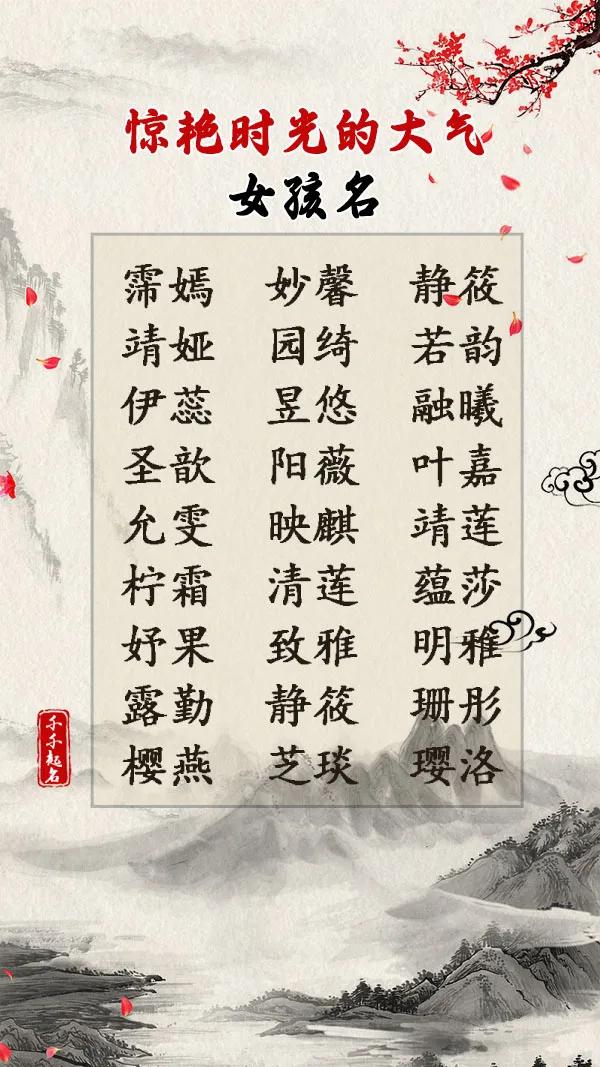 惊艳时光的大气
女孩名
霈嫣 妙馨 静筱
靖娅 园绮 若韵
伊蕊 昱悠 融曦
圣歆 阳薇 叶嘉
允雯 映麒 靖莲
柠霜 清莲 蕴莎
妤果 致雅 明雅
露勤 静筱 珊彤
樱燕 芝琰 璎洛
千千起名